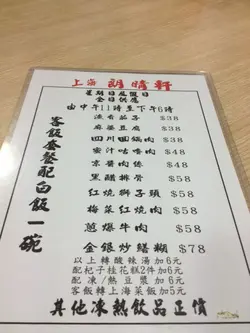 上海 朗晴軒
星期日及假日
全日供應
由中午11時至下午6時
客飯套餐配白飯一碗
漁香茄子 $38
麻婆豆腐 $38
四川回鍋肉 $38
蜜汁咕嚕肉 $38
京醬肉絲 $48
黑醋排骨 $58
紅燒獅子頭 $58
梅菜紅燒肉 $58
蔥爆牛肉 $58
金銀炒鱔糊 $78
以上轉酸辣湯加6元
配杞子桂花糕2件加6元
配凍/熱豆漿加6元
客飯轉上海菜飯加5元
其他凍熱飲品正價